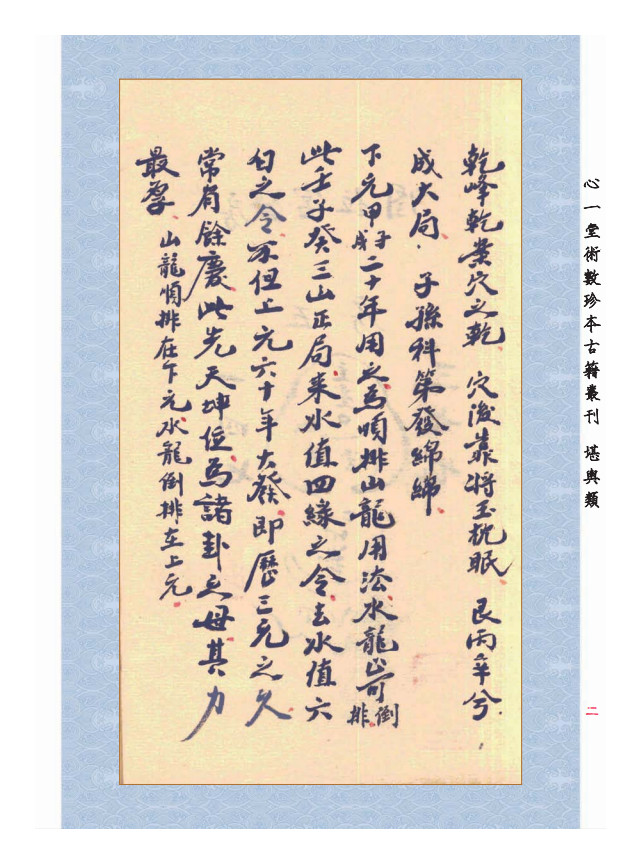 心一堂術數珍本古籍叢刊 堪輿類
二
乾峰乾巒穴之乾 穴後靠將玉枕眠 艮丙辛兮
成大局 子孫科第發綿綿
下元甲子二十年用之為順排山龍用法水龍可倒排
此壬子癸三山正局來水值四綠之令去水值六
白之令不但上元六十年大發即歷三元之久
常有餘慶此先天坤位為諸卦之母其力
最厚 山龍順排在下元水龍倒排在上元